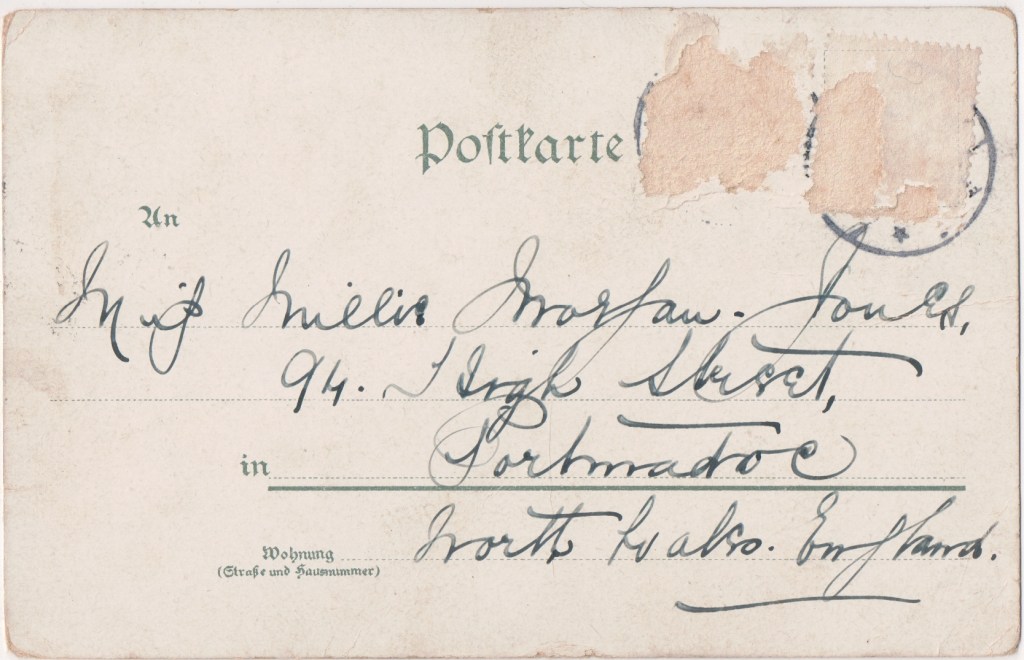 Postkarte
An
Miss Millie Morgan-Jones,
94. High Street,
in Portmadoc
North Wales. England.
Wohnung
(Straße und Hausnummer)